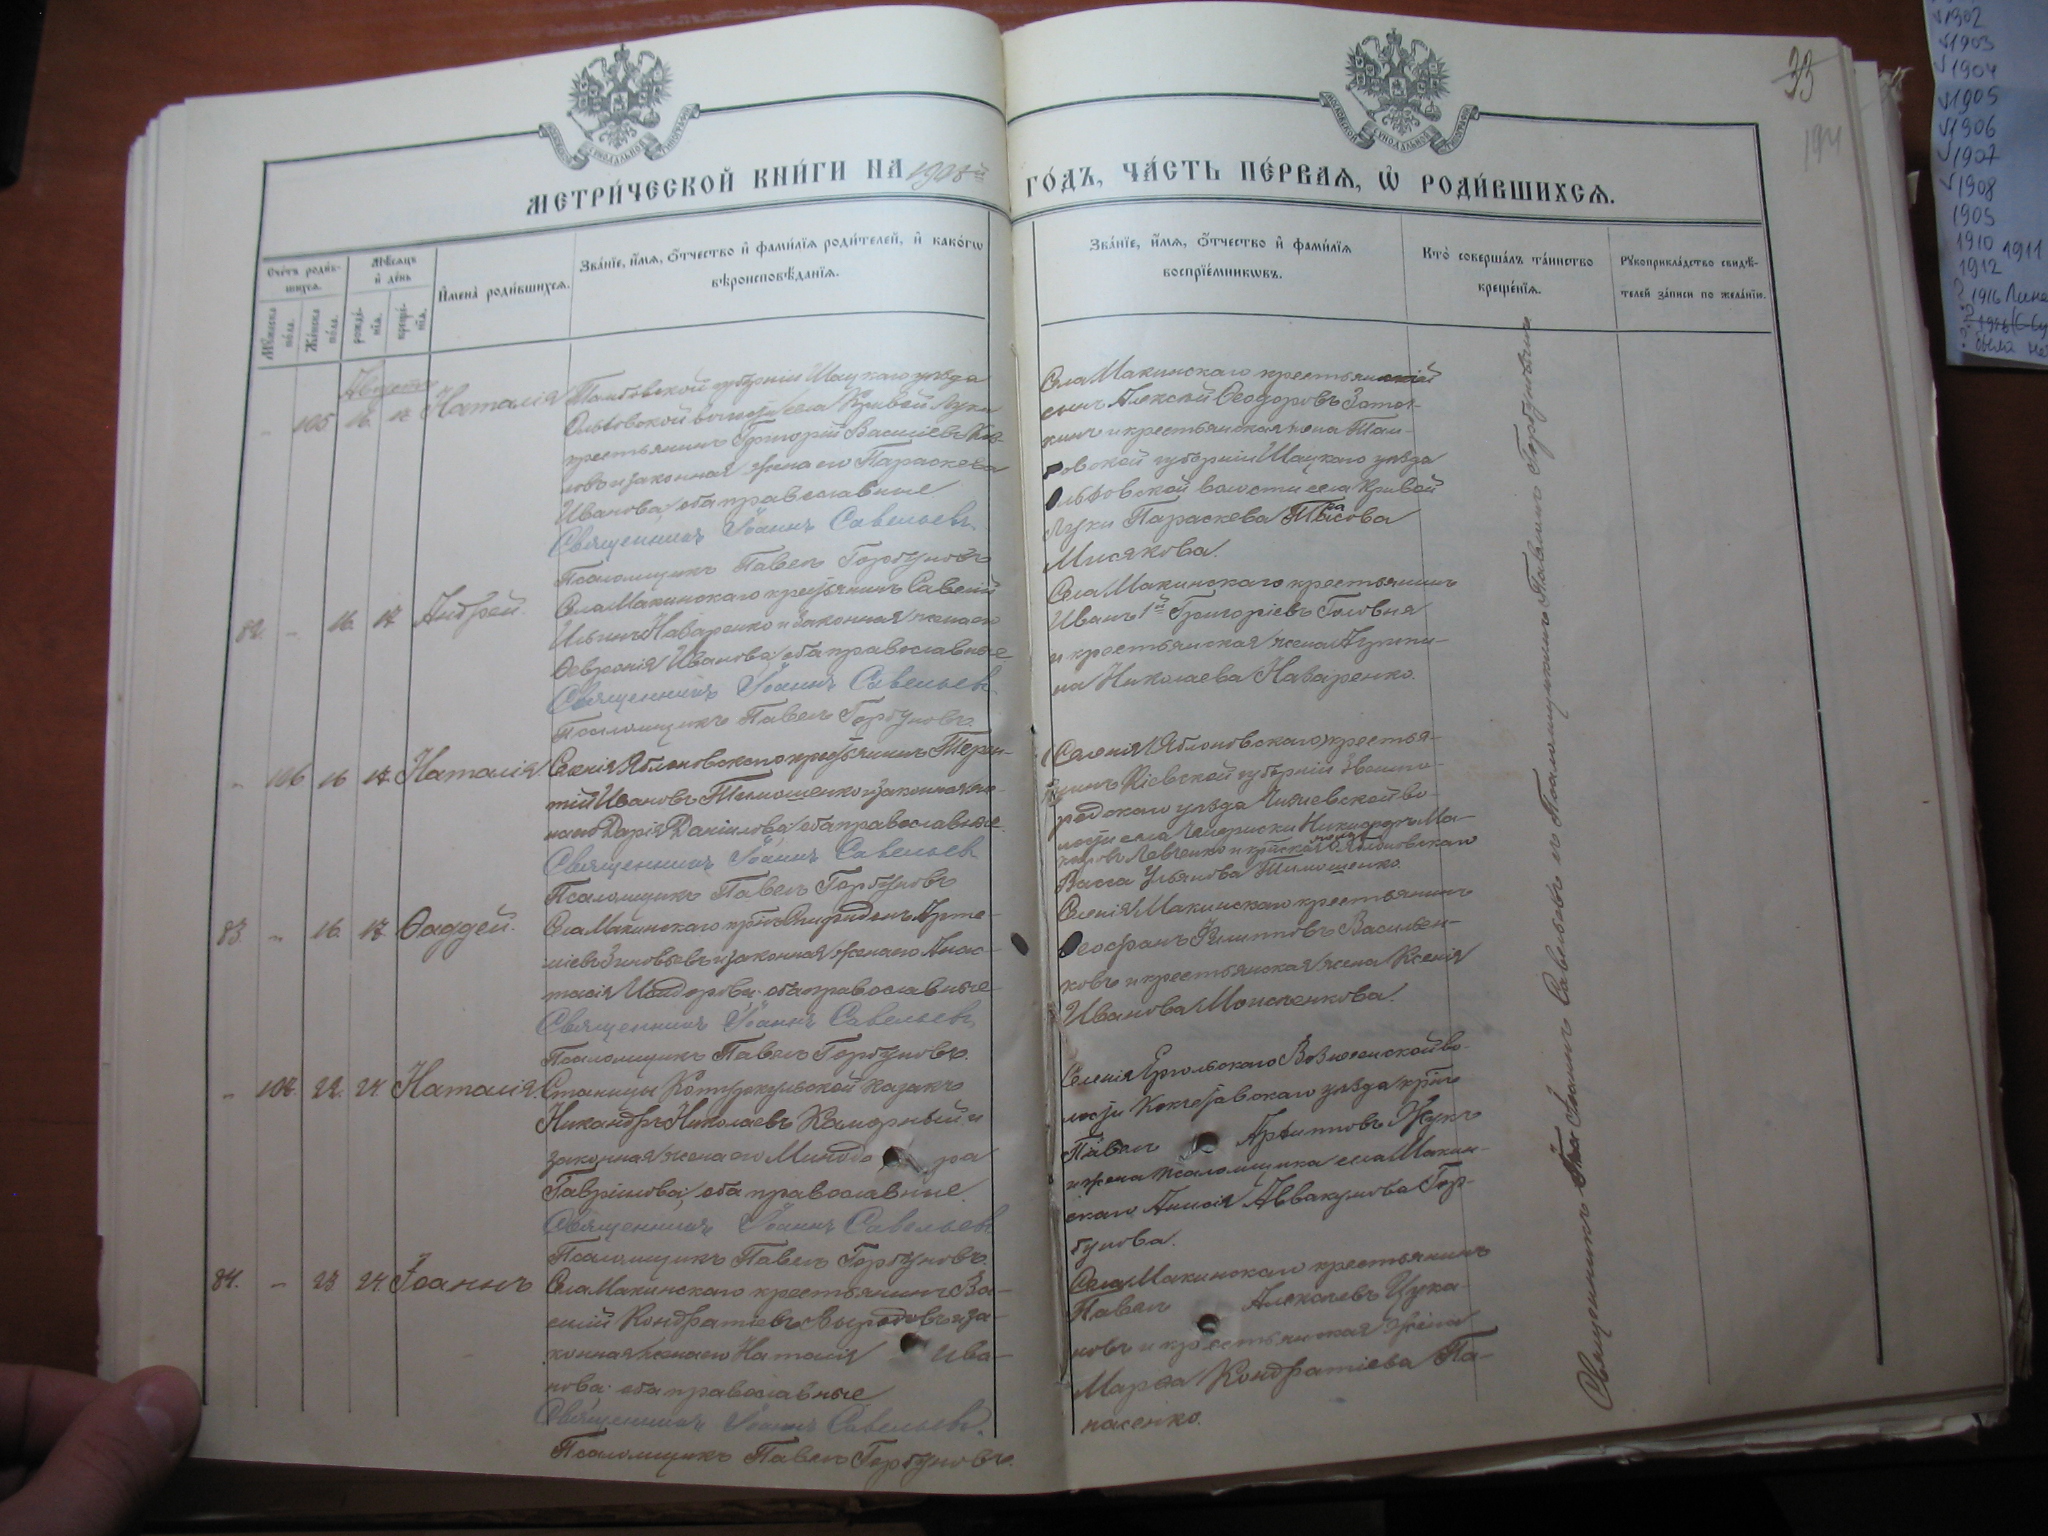 МЕТРИ́ЧЕСКОЙ КНИ́ГИ НА 1908й ГО́ДЪ, ЧА́СТЬ ПЕ́РВАѦ, Ѽ РОДИ́ВШИХСѦ.
МОСКОВСКОЙ СѴНОДАЛЬНОЙ ТИПОГРАФІИ
МОСКОВСКОЙ СѴНОДАЛЬНОЙ ТИПОГРАФІИ
33
194
Сче́тъ роди́вшихсѧ.
Мꙋ́жеска по́ла.
Же́нска по́ла.
Мѣ́сѧцъ и де́нь
рожде́нїѧ.
креще́нїѧ.
Имена̀ роди́вшихсѧ.
Зва́нїе, и́мѧ, ѻ҆́тчество и҆ фами́лїѧ роди́телей, и҆ како́гѡ
вѣроисповѣ́данїѧ.
Зва́нїе, и́мѧ, ѻ҆́тчество и҆ фами́лїѧ
воспрїе́мникѡвъ.
Кто̀ соверша́лъ та́инство
креще́нїѧ.
Рꙋкоприкла́дство свидѣ́-
телей за́писи по жела́нїю.
Августъ
105 16. 17 Наталія
Тамбовской губерніи Шацкаго уѣзда
Ольховской волости села Кривой Луки
крестьянинъ Григорій Василіевъ
и законная жена его Параскева
Иванова оба православные
Священникъ Іоаннъ Савельевъ.
Псаломщикъ Павелъ Горбуновъ
Села Макинскаго крестьянскій
сынъ Алексѣй Ѳеодоровъ
и крестьянская жена Там-
бовской губерніи Шацкаго уѣзда
Ольховской волости села Кривой
Луки Параскева
Мисякова.
82. - 16. 17 Андрей.
Села Макинскаго крестьянинъ Савелій
Ильинъ Назаренко и законная жена его
Ѳевронія Иванова оба православные
Священникъ Іоаннъ Савельевъ.
Псаломщикъ Павелъ Горбуновъ.
Села Макинскаго крестьянинъ
Иванъ 1й Григоріевъ Головня
и крестьянская жена Агрипи-
на Николаева Назаренко.
„ 106 16 17 Наталія
Селенія Яблоновскаго крестьянинъ Терен-
тій Ивановъ Тимошенко и законная же-
на его Дарія Даніилова оба православные.
Священникъ Іоаннъ Савельевъ
Псаломщикъ Павелъ Горбуновъ
Селенія Яблоновскаго крестья-
нинъ Кіевской губерніи Звениго-
родскаго уѣзда во-
лости села Никифоръ Ма-
Левченко и Яблоновскаго
Васса Ульянова Тимошенко.
83. „ 16. 17 Ѳаддей.
Села Макинскаго кр-нъ Спиридонъ Арте-
міевъ Зиновьевъ и законная жена его Анас-
тасія Исидорова оба православные
Священникъ Іоаннъ Савельевъ,
Псаломщикъ Павелъ Горбуновъ.
Селенія Макинскаго крестьянинъ
Ѳеофанъ Филипповъ Василен-
ковъ и крестьянская жена Ксенія
Иванова
„ 107. 22. 24. Наталія.
Станицы Котуркульской казакъ
Никандръ Николаевъ Каморный и
законная жена его Минодо ра
Гавріилова оба православные.
Священникъ Іоаннъ Савельевъ
Псаломщикъ Павелъ Горбуновъ.
Селенія Ерголькаго Вознесенской во-
лости Кокчетавскаго уѣзда кр-нъ
Павелъ Архиповъ Жукъ
и жена псаломщика села Макин-
скаго Анисія Аввакумова Гор-
бунова.
84. - 23. 24. Іоаннъ
Села Макинскаго крестьянинъ Ва-
силій Кондратіевъ Выродовъ и за-
конная жена его Наталія Ива-
нова оба православные
Священникъ Іоаннъ Савельевъ.
Псаломщикъ Павелъ Горбуновъ.
Села Макинскаго крестьянинъ
Павелъ Алексѣевъ Цука-
новъ и крестьянская жена
Марѳа Кондратіева Па-
насенко.
Священникъ Іоаннъ Савельевъ съ Псаломщикомъ Павломъ Горбуновымъ
√1902
√1903
√1904
√1905
√1906
√1907
√1908
1909
1910 1911
1912
1916
была